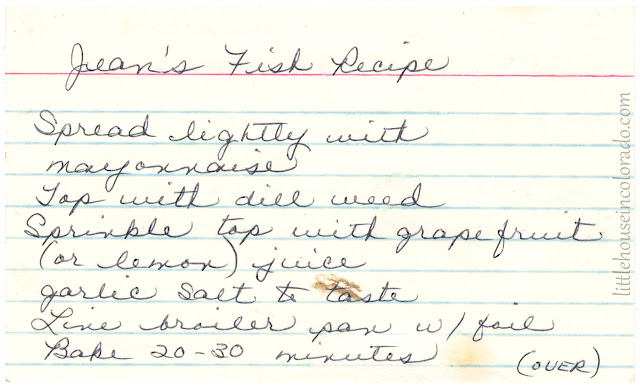 Jean's Fish Recipe
Spread lightly with
mayonnaise
Top with dill weed
Sprinkle top with grapefruit
(or lemon) juice
garlic salt to taste
Line broiler pan w/ foil
Bake 20-30 minutes
(OVER)
littlehouseincolorado.com